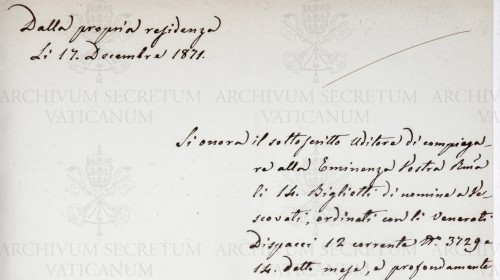 Dalla propria residenza
Li 17. Decembre 1871.
ARCHIVUM SECRETUM
VATICANUM
ARCHIVUM SECRETUM
VATICANUM
Si onora il sottoscritto Uditore di compiega-
re alla Eminenza Vostra Rma
li 14. Biglietti di nomine a Ve-
scovati, ordinati con li venerati
Dispacci 12 corrente No. 3729 e
14. detto mese, e profondamente